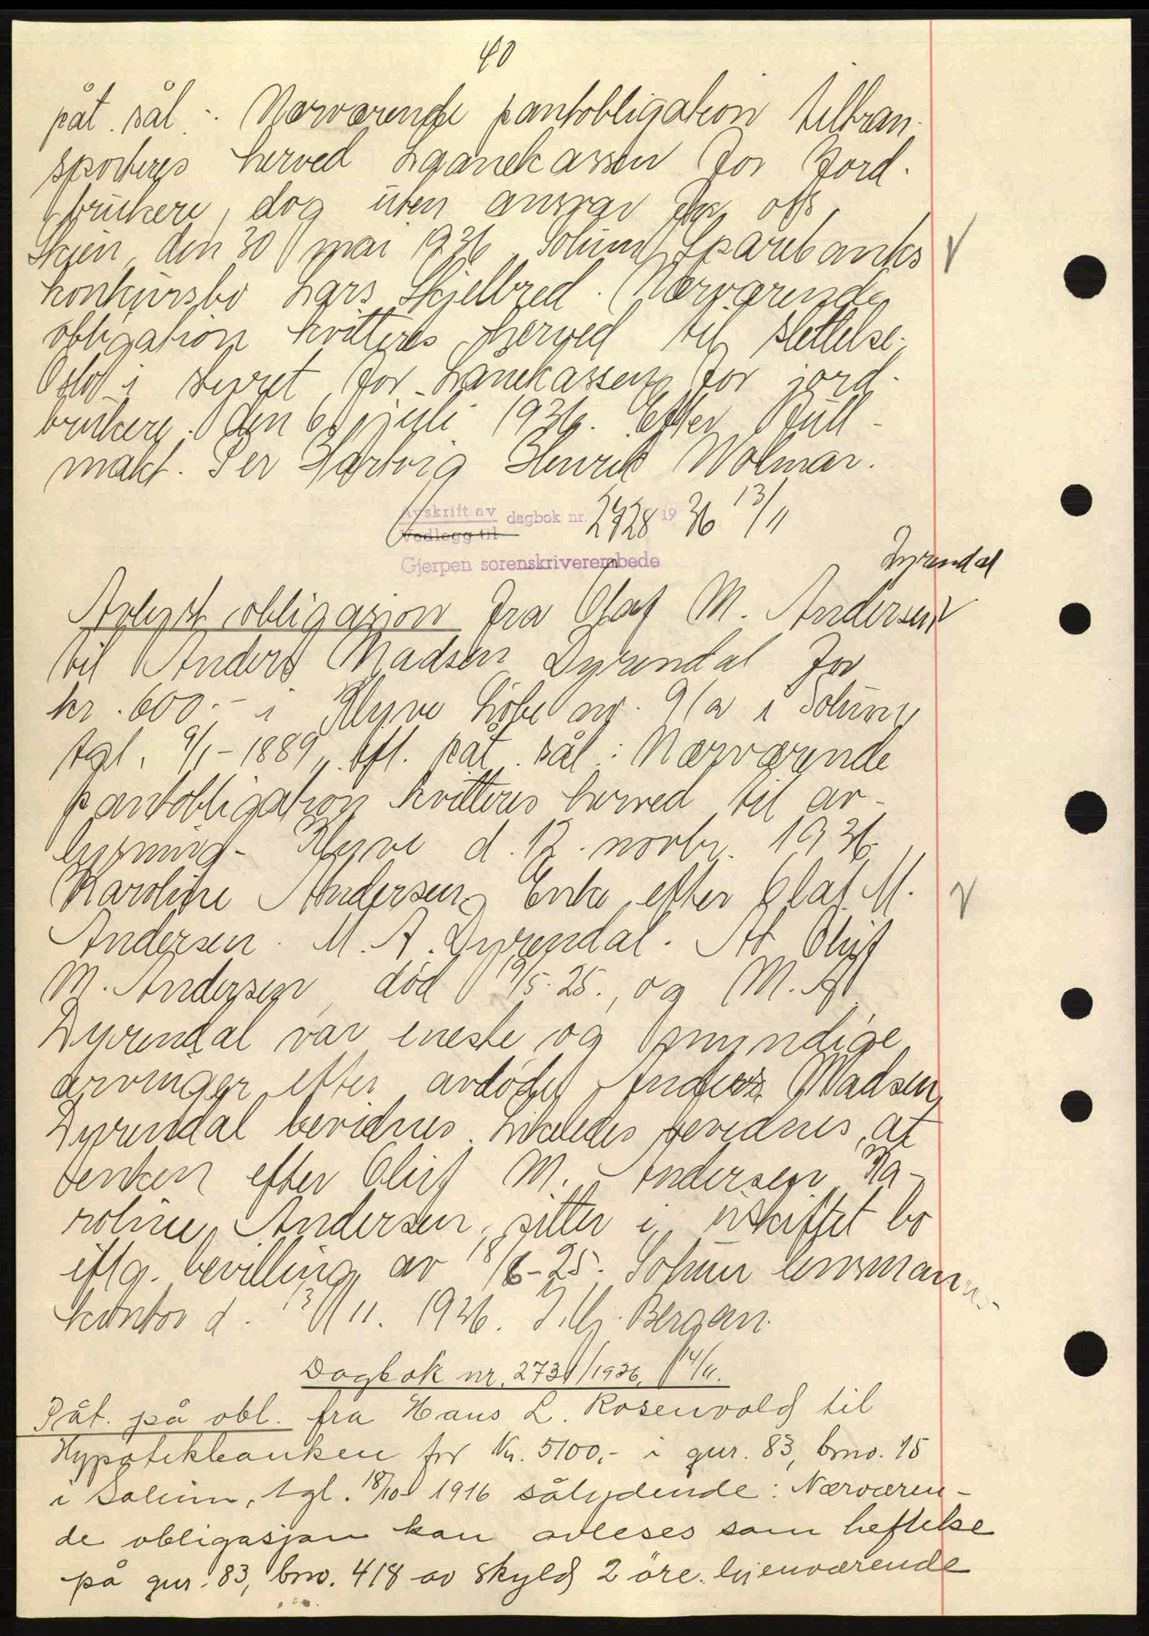 40
påt. sål.: Nærværende pantobligation tiltran-
sporteres herved Laanekassen for Jord-
brukere, dog uten ansvar for oss
Skien, den 30 mai 1936 Solum Sparebanks
konkursbo Lars Skjelbred. Nærværende
obligation kvitteres herved til slettelse.
Oslo i styret for Lånekassen for jord-
brukere. den 6 juli 1936. Efter full-
makt. Per Hartvig Henrik Wolmar.
Avskrift av
Vedlegg til dagbok nr. 2728 1936 13/11
Gjerpen sorenskriverembede
Dyrendal
Avlyst obligasjon fra Olaf M. Andersen
til Anders Madsen Dyrendal for
kr. 600.- i Klyve løbe nr. 91a i Solum,
tgl. 9/1-1889, påt. sål.: Nærværende
pantobligation kvitteres herved til av-
lysning. Klyve d. 12. novbr. 1936.
Karoline Andersen, Enke efter Olaf M.
Andersen. M. A. Dyrendal. At Oluf
M. Andersen, død /5-25., og M. A.
Dyrendal var eneste og myndige
arvinger efter avdøde Anders Madsen
Dyrendal bevidnes. Likeledes bevidnes, at
enken efter Oluf M. Andersen, Ka-
roline Andersen, sitter i uskiftet bo
iflg. bevilling av 18/6-25. Solum lensmanns-
kontor d. 13/11. 1936. Bergan.
Dagbok nr. 2731/1936. 14/11.
Påt. på obl. fra Hans L. Rosenvold til
Hypotekbanken for Kr. 5100,- i gnr. 83, brno. 15
i Solum, tgl. 18/10 1916 sålydende: Nærværen-
de obligasjon kan avleses som heftelse
på gnr. 83, brno. 418 av skyld 2 öre. Gjenværende